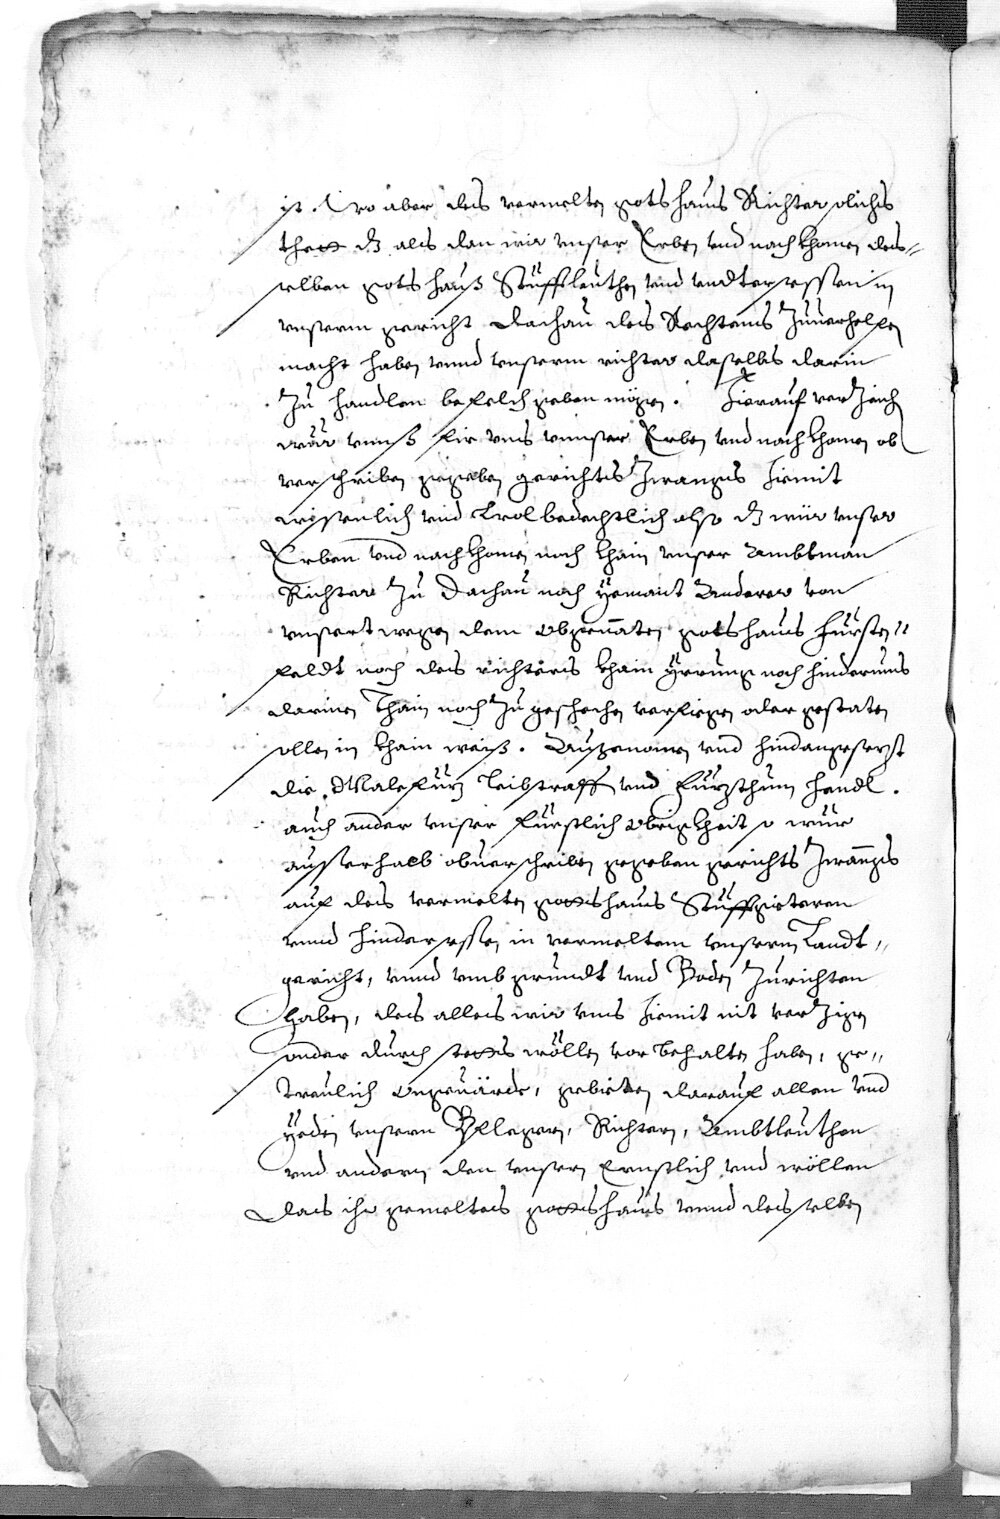 ist. Wo aber des vermelten gotshaus Richter solichs
thett dz als dan wir unser Erben und nachkhomen des=
selben gotshauß Stüfftleuthen und undtersessen in
unserm gericht Dachau des Rechtens Zuuerhelfen
macht haben unnd unserm richter daselbs darin
Zu handlen befelch geben mögen. Hierauf verzeich
wür unnß für uns unnser Erben und nachkhomen ob
verschriben gegeben gerichts Zwangs hiemit
wissenlich und wolbedechtlich also dz wür unser
Erben und nachkhomen noch khain unser Ambtman
Richter Zu Dachau noch yemant Anderer von
unsert wegen dem obgenanten gotshaus Fürsten=
feldt noch des richters khain yrrung noch hindernus
darinen thain noch Zu geschechen verfiegen oder gestaten
sollen in khain weiß. Außgenomen und hindangesetzt
die Malefitz leibstraff und Fürzthum hendl.
auch ander unser fürstlich Obrigkheit so wür
ausserhalb obuerschriben gegeben gerichts Zwangs
auf des vermelten gottshaus Stüfftgietern
unnd hindersessen in vermeltem unserm Landt=
gericht, unnd umb grundt und Boden Zurichten
haben, des alles wir uns hiemit nit verzigen
sonder durch wöllen vorbehalten haben, ge=
treulich ongeuärde, gebieten darauf allen und
yeden unsern Pflegern, Richtern, Ambtleuthen
und andern den unsern Ernstlich und wöllen
Das ihr gemeltes gottshaus unnd desselben